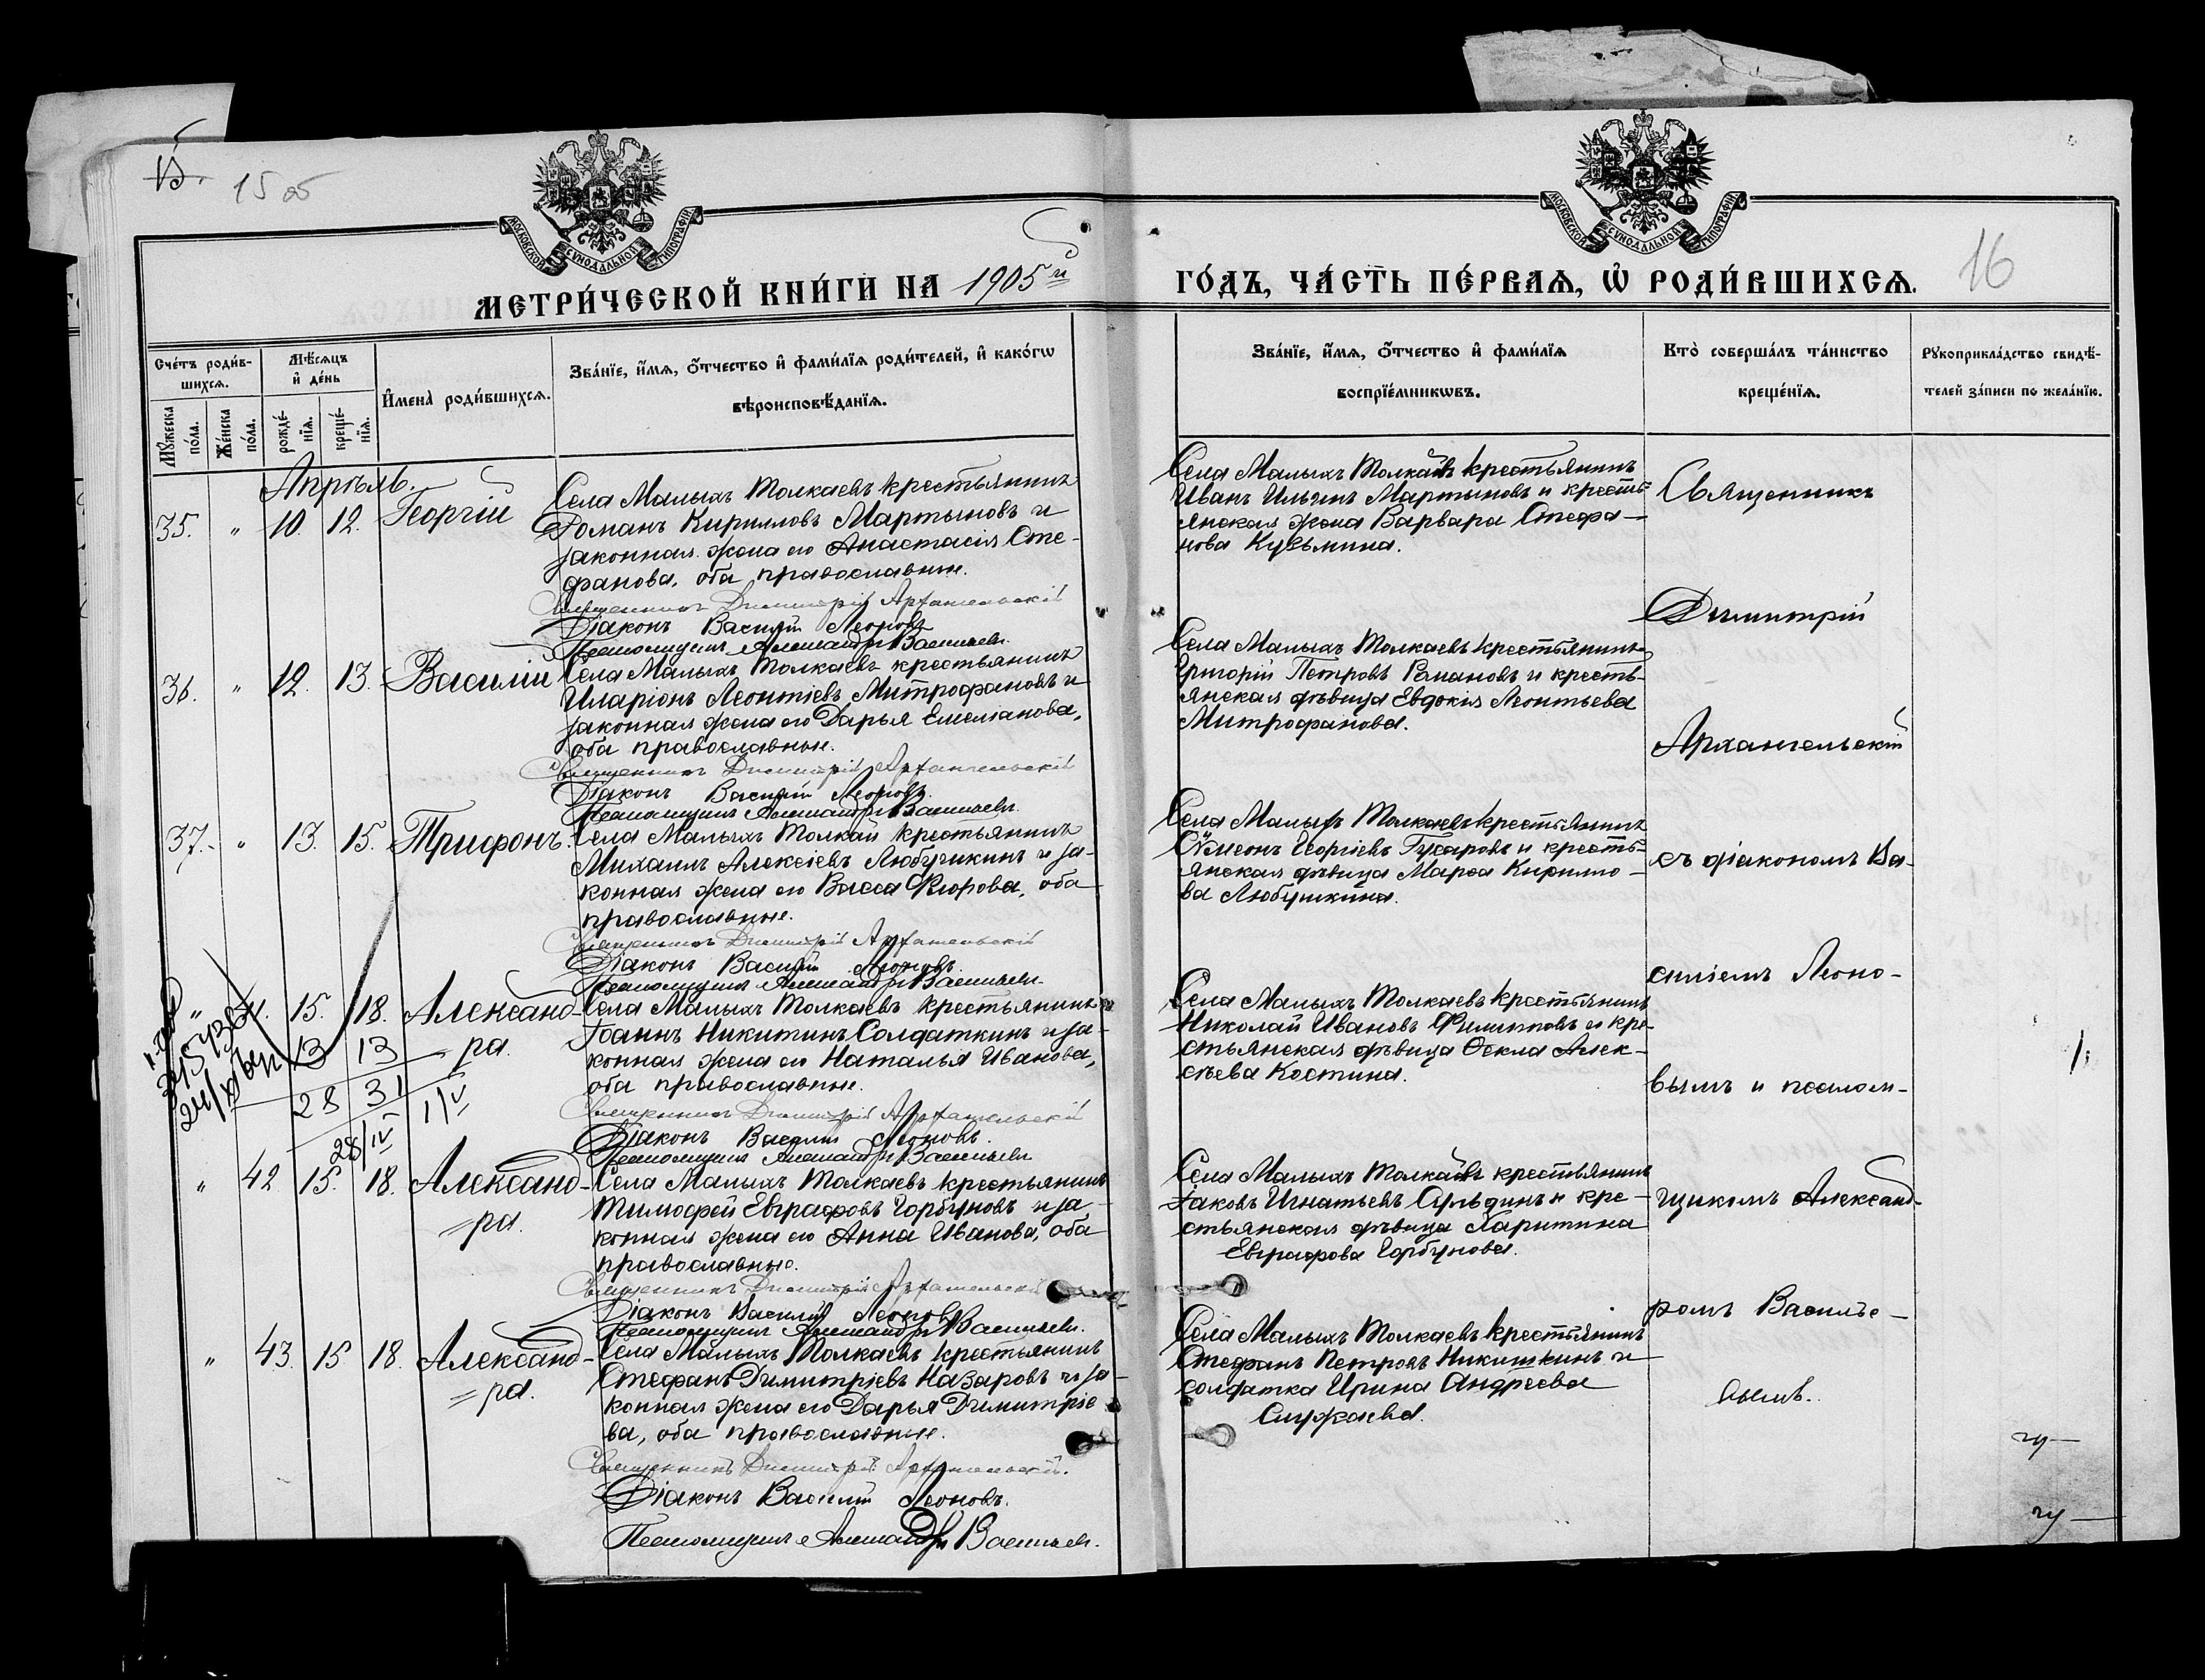 15.
15 об
МОСКОВСКОЙ СѴНОДАЛЬНОЙ ТИПОГРАФІИ
МОСКОВСКОЙ СѴНОДАЛЬНОЙ ТИПОГРАФІИ
МЕТРИ́ЧЕСКОЙ КНИ́ГИ НА 1905й
ГО́ДЪ, ЧА́СТЬ ПЕ́РВАѦ, Ѡ҆ РОДИ́ВШИХСѦ.
16
Сче́тъ роди́в-
шихсѧ.
Мѣ́сѧцъ
и҆ де́нь
Мꙋ́жеска
по́ла.
Же́нска
по́ла.
рожде́-
нїѧ.
креще́-
нїѧ.
И҆мена̀ роди́вшихсѧ.
Зва́нїе, и҆́мѧ, ѻ҆́тчество и҆ фами́лїѧ роди́телей, и҆ како́гѡ
вѣроисповѣ́данїѧ.
Зва́нїе, и҆́мѧ, ѻ҆́тчество и҆ фами́лїѧ
воспрїе́мникѡвъ.
Кто̀ соверша́лъ та́инство
креще́нїѧ.
Рꙋкоприкла́дство свидѣ́-
телей за́писи по жела́нїю.
Апрѣль.
35. " 10. 12. Георгій
Села Малыхъ Толкаевъ крестьянинъ
Романъ Кирилловъ Мартыновъ и
законная жена его Анастасія Сте-
фанова, оба православные.
Священникъ Димитрій Архангельскій
Діаконъ Василій Леоновъ
Псаломщикъ Александръ Васильевъ.
Села Малыхъ Толкаевъ крестьянинъ
Иванъ Ильинъ Мартыновъ и кресть-
янская жена Варвара Стефа-
нова Кузьмина.
36. " 12. 13. Василій
Села Малыхъ Толкаевъ крестьянинъ
Иларіонъ Леонтіевъ Митрофановъ и
законная жена его Дарья Емеліанова,
оба православные.
Священникъ Димитрій Архангельскій
Діаконъ Василій Леоновъ.
Псаломщикъ Александръ Васильевъ.
Села Малыхъ Толкаевъ крестьянинъ
Григорій Петровъ Романовъ и кресть-
янская дѣвица Евдокія Леонтьева
Митрофанова.
37. " 13. 15. Трифонъ.
Села Малыхъ Толкай крестьянинъ
Михаилъ Алексіевъ Любушкинъ и за-
конная жена его Васса Флорова, оба
православные.
Священникъ Димитрій Архангельскій
Діаконъ Василій Леоновъ.
Псаломщикъ Александръ Васильевъ.
Села Малыхъ Толкаевъ крестьянинъ
Сѵмеонъ Георгіевъ Гусаровъ и кресть-
янская дѣвица Марѳа Кирилло-
ва Любушкина.
" 15. 18. Александ-
ра.
13 13
28 31
28/IV
1/V
Села Малыхъ Толкаевъ крестьянинъ
Іоаннъ Никитинъ Солдаткинъ и за-
конная жена его Наталья Иванова,
оба православные.
Священникъ Димитрій Архангельскій
Діаконъ Василій Леоновъ.
Псаломщикъ Александръ Васильевъ
Села Малыхъ Толкаевъ крестьянинъ
Николай Ивановъ Филипповъ и кре-
стьянская дѣвица Ѳекла Алек-
сѣева Костина.
" 42 15. 18. Александ-
ра.
Села Малыхъ Толкаевъ крестьянинъ
Тимофей Евграфовъ Горбуновъ и за-
конная жена его Анна Иванова, оба
православные.
Священникъ Димитрій Архангельскій
Діаконъ Василій Леоновъ
Псаломщикъ Александръ Васильевъ.
Села Малыхъ Толкаевъ крестьянинъ
Іаковъ Игнатьевъ и кре-
стьянская дѣвица Харитина
Евграфова Горбунова.
" 43. 15 18. Александ-
ра.
Села Малыхъ Толкаевъ крестьянинъ
Стефанъ Димитріевъ Назаровъ и за-
конная жена его Дарья Димитріе
ва, оба православные.
Священникъ Димитрій Архангельскій.
Діаконъ Василій Леоновъ.
Псаломщикъ Александръ Васильевъ.
Села Малыхъ Толкаевъ крестьянинъ
Стефанъ Петровъ Никишкинъ и
солдатка Ирина Андреева
Священникъ
Димитрій
Архангельскій
съ діакономъ Ва-
силіемъ Леоно-
вымъ и псалом-
щикомъ Александ-
ромъ Василье-
вымъ.